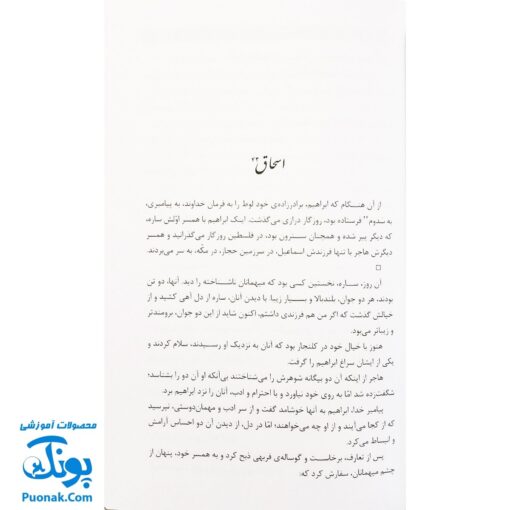 اسحاق۴۲
از آن هنگام که ابراهیم، برادرزاده‌ی خود لوط را به فرمان خداوند، به پیامبری،
به سدوم فرستاده بود، روزگار درازی می‌گذشت. اینک ابراهیم با همسر اوّلش ساره،
که دیگر پیر شده و همچنان سترون بود، در فلسطین روزگار می‌گذرانید و همسر
دیگرش هاجر با تنها فرزندش اسماعیل، در سرزمین حجاز، در مکّه، به سر می‌بردند.
آن روز، ساره، نخستین کسی بود که میهمانان ناشناخته را دید. آنها، دو تن
بودند، هر دو جوان، بلندبالا و بسیار زیبا. با دیدن آنان، ساره از دل آهی کشید و از
خیالش گذشت که اگر من هم فرزندی داشتم، اکنون شاید از این دو جوان، برومندتر
و زیباتر می‌بود.
هنوز با خیال خود در کلنجار بود که آنان به نزدیک او رسیدند، سلام کردند و
یکی از ایشان سراغ ابراهیم را گرفت.
هاجر از اینکه آن دو بیگانه شوهرش را می‌شناختند بی‌آنکه او آن دو را بشناسد؛
شگفت‌زده شد امّا به روی خود نیاورد و با احترام و ادب، آنان را نزد ابراهیم برد.
پیامبر خدا، ابراهیم به آنها خوشامد گفت و از سر ادب و مهمان‌دوستی، نپرسید
که از کجا می‌آیند و از او چه می‌خواهند؛ امّا در دل، از دیدن آن دو احساس آرامش
و انبساط می‌کرد.
پس از تعارف، برخاست و گوساله‌ی فربهی ذبح کرد و به همسر خود، پنهان از
چشم میهمانان، سفارش کرد که:
محصولات آموزشی
پونک
Puonak.Com